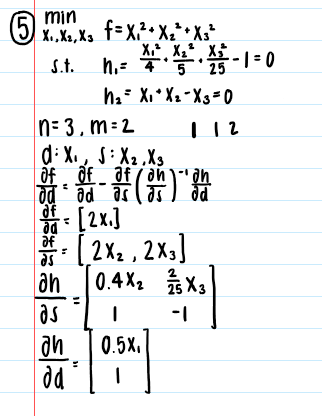 ⑤ min x₁,x₂,x₃ f = x₁² + x₂² + x₃²
s.t. h₁ = x₁²/4 + x₂²/5 + x₃²/25 - 1 = 0
h₂ = x₁ + x₂ - x₃ = 0
n = 3, m = 2 1 1 2
d: x₁, s: x₂, x₃
∂f/∂d = ∂f/∂d - ∂f/∂s (∂h/∂s)⁻¹ ∂h/∂d
∂f/∂d = [2x₁]
∂f/∂s = [2x₂, 2x₃]
∂h/∂s = [0.4x₂ 2/25 x₃
1 -1]
∂h/∂d = [0.5x₁
1]